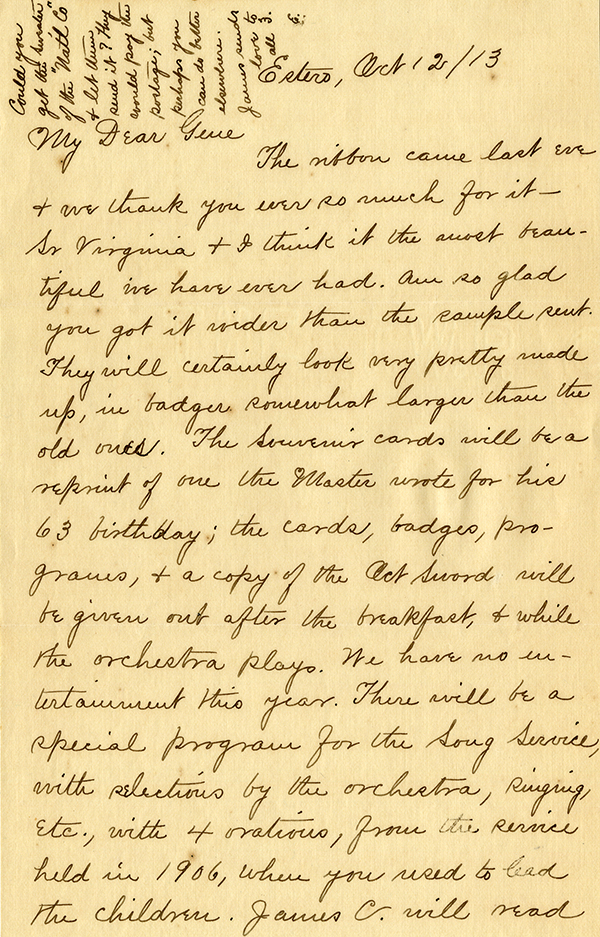 Could you
get the sweater
of the "Nat'l Co"
& let them
send it? They
would pay the
postage; but
perhaps you
can do better
elsewhere.
James sends
love to
all
E.
Estero, Oct 12/13
My Dear Gene
The ribbon came last eve
& we thank you ever so much for it—
Sr Virginia & I think it the most beau-
tiful we have ever had. Am so glad
you got it wider than the sample sent.
They will certainly look very pretty made
up, in badges somewhat larger than the
old ones. The Souvenir cards will be a
reprint of one the Master wrote for his
63 birthday; the cards, badges, pro-
grams, & a copy of the Oct Sword will
be given out after the breakfast, & while
the orchestra plays. We have no en-
tertainment this year. There will be a
special program for the Song Service,
with selections by the orchestra, singing,
Etc., with 4 orations, from the service
held in 1906, when you used to lead
the children. James C. will read